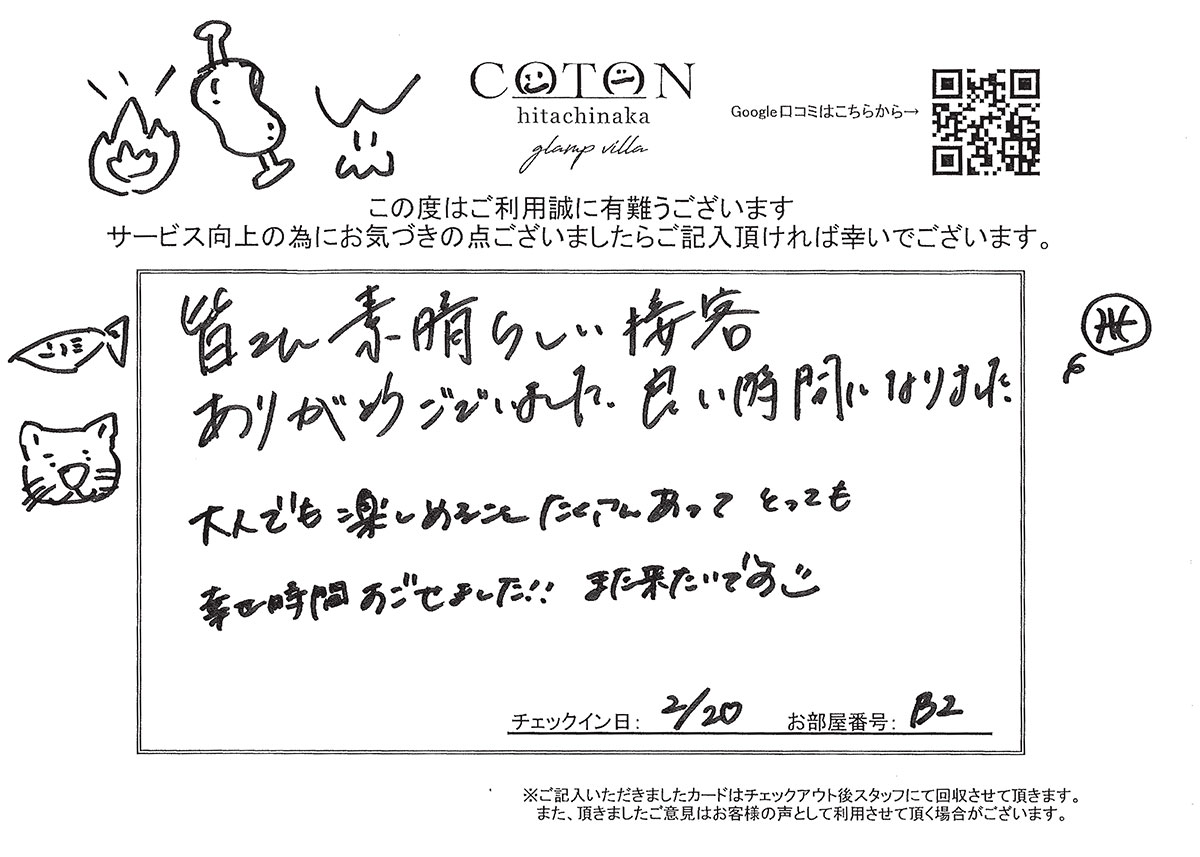 COTON
hitachinaka
glamp villa
Google口コミはこちらから→
この度はご利用誠に有難うございます
サービス向上の為にお気づきの点ございましたらご記入頂ければ幸いでございます。
皆さん素晴らしい接客
ありがとうございました。良い時間になりました
大人でも楽しめることたくさんあってとっても
幸せ時間すごせました!! また来たいです
チェックイン日: 2/20 お部屋番号: B2
※ご記入いただきましたカードはチェックアウト後スタッフにて回収させて頂きます。
また、頂きましたご意見はお客様の声として利用させて頂く場合がございます。